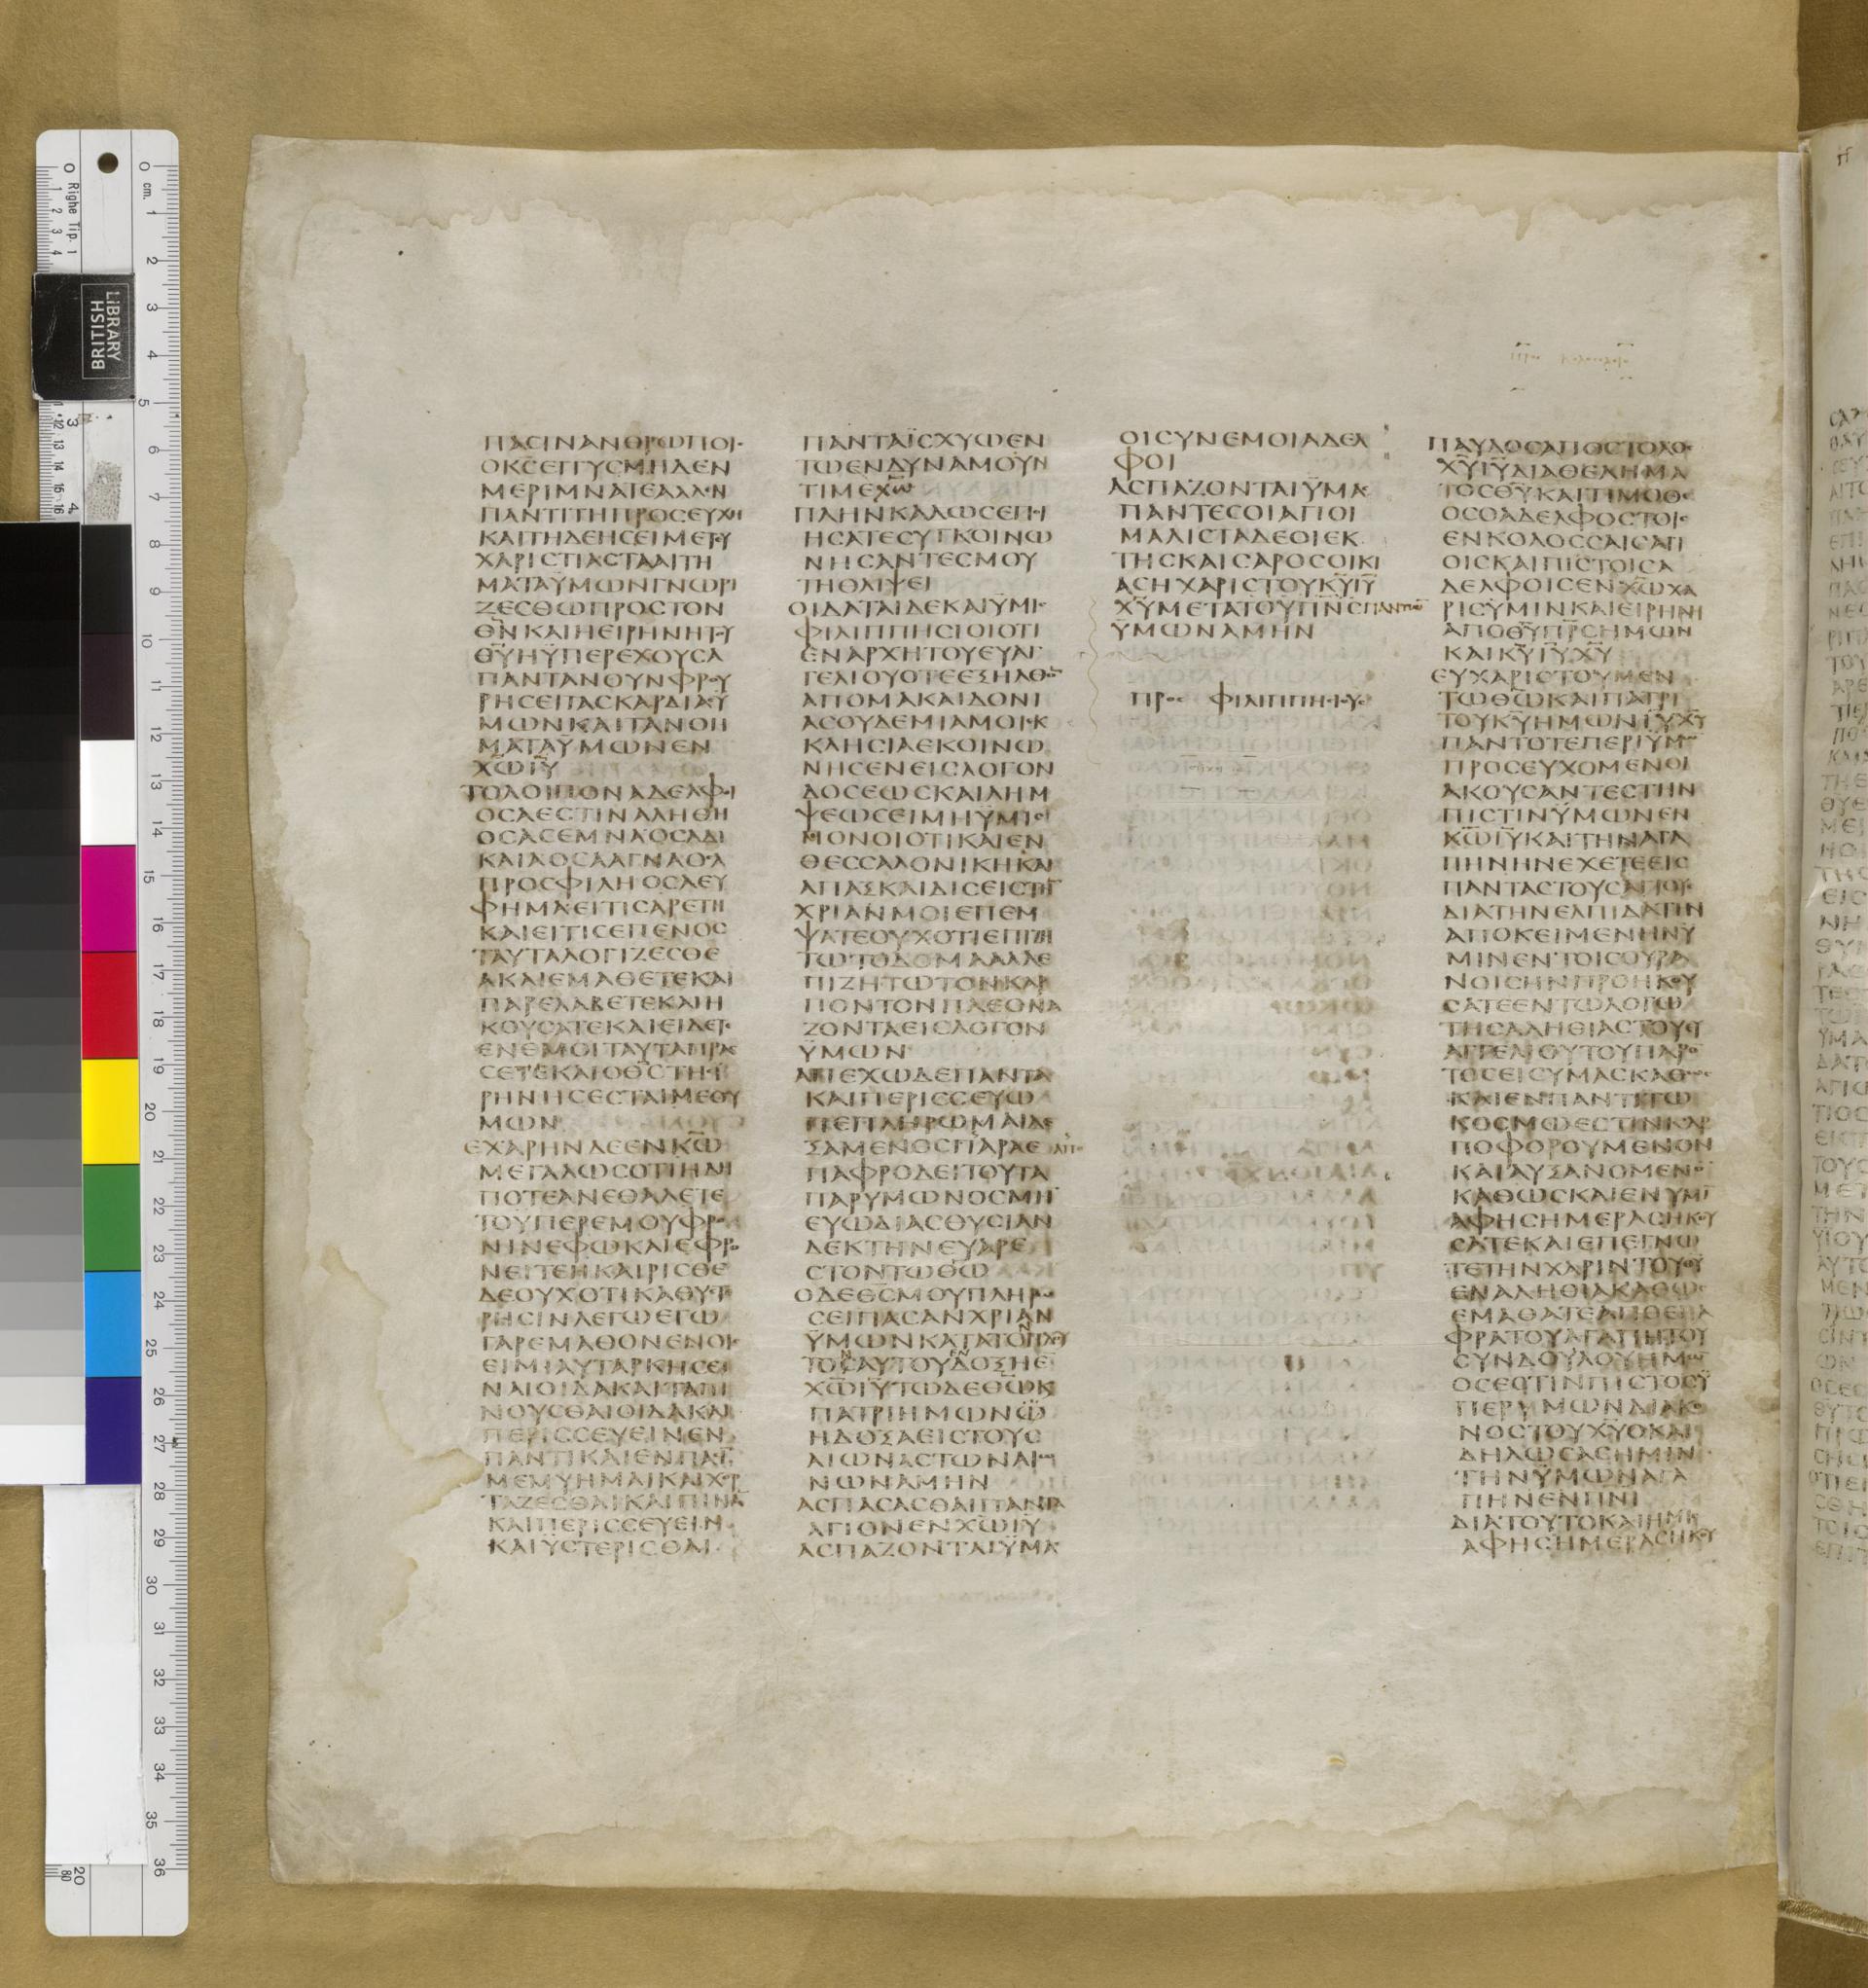 ΠΑϹΙΝΑΝΘΡΩΠΟΙϹ
ΟΚ̅Ϲ̅ΕΓΓΥϹΜΗΔΕΝ
ΜΕΡΙΜΝΑΤΕΑΛΛΕΝ
ΠΑΝΤΙΤΗΠΡΟϹΕΥΧΗ
ΚΑΙΤΗΔΕΗϹΕΙΜΕΤΕΥ
ΧΑΡΙϹΤΙΑϹΤΑΑΙΤΗ
ΜΑΤΑΫΜΩΝΓΝΩΡΙ
ΖΕϹΘΩΠΡΟϹΤΟΝ
Θ̅Ν̅ΚΑΙΗΕΙΡΗΝΗΤΟΥ
Θ̅Υ̅ΗΫΠΕΡΕΧΟΥϹΑ
ΠΑΝΤΑΝΟΥΝΦΡΟΥ
ΡΗϹΕΙΤΑϹΚΑΡΔΙΑϹΫ
ΜΩΝΚΑΙΤΑΝΟΗ
ΜΑΤΑΫΜΩΝΕΝ
Χ̅Ω̅Ι̅Υ̅
ΤΟΛΟΙΠΟΝΑΔΕΛΦΟΙ
ΟϹΑΕϹΤΙΝΑΛΗΘΗ
ΟϹΑϹΕΜΝΑΟϹΑΔΙ
ΚΑΙΑΟϹΑΑΓΝΑΟϹΑ
ΠΡΟϹΦΙΛΗΟϹΑΕΥ
ΦΗΜΑΕΙΤΙϹΑΡΕΤΗ
ΚΑΙΕΙΤΙϹΕΠΕΝΟϹ
ΤΑΥΤΑΛΟΓΙΖΕϹΘΕ
ΑΚΑΙΕΜΑΘΕΤΕΚΑΙ
ΠΑΡΕΛΑΒΕΤΕΚΑΙΗ
ΚΟΥϹΑΤΕΚΑΙΕΙΔΕΤΕ
ΕΝΕΜΟΙΤΑΥΤΑΠΡΑϹ
ϹΕΤΕΚΑΙΟΘ̅Ϲ̅ΤΗϹΙ
ΡΗΝΗϹΕϹΤΑΙΜΕΘΥ
ΜΩΝ
ΕΧΑΡΗΝΔΕΕΝΚ̅Ω̅
ΜΕΓΑΛΩϹΟΤΙΗΔΗ
ΠΟΤΕΑΝΕΘΑΛΕΤΕ
ΤΟΥΠΕΡΕΜΟΥΦΡΟ
ΝΙΝΕΦΩΚΑΙΕΦΡΟ
ΝΕΙΤΕΗΚΑΙΡΙϹΘΕ
ΔΕΟΥΧΟΤΙΚΑΘΥϹΤΕ
ΡΗϹΙΝΛΕΓΩΕΓΩ
ΓΑΡΕΜΑΘΟΝΕΝΟΙϹ
ΕΙΜΙΑΥΤΑΡΚΗϹΕΙ
ΝΑΙΟΙΔΑΚΑΙΤΑΠΙ
ΝΟΥϹΘΑΙΟΙΔΑΚΑΙ
ΠΕΡΙϹϹΕΥΕΙΝΕΝ
ΠΑΝΤΙΚΑΙΕΝΠΑϹΙ
ΜΕΜΥΗΜΑΙΚΑΙΧΟΡ
ΤΑΖΕϹΘΑΙΚΑΙΠΙΝΑ
ΚΑΙΠΕΡΙϹϹΕΥΕΙΝ
ΚΑΙΫϹΤΕΡΙϹΘΑΙ
ΠΑΝΤΑΪϹΧΥΩΕΝ
ΤΩΕΝΔΥΝΑΜΟΥΝ
ΤΙΜΕΧ̅Ω̅
ΠΛΗΝΚΑΛΩϹΕΠΟΙ
ΗϹΑΤΕϹΥΓΚΟΙΝΩ
ΝΗϹΑΝΤΕϹΜΟΥ
ΤΗΘΛΙΨΕΙ
ΟΙΔΑΤΑΙΔΕΚΑΙΫΜΙϹ
ΦΙΛΙΠΠΗϹΙΟΙΟΤΙ
ΕΝΑΡΧΗΤΟΥΕΥΑΓ
ΓΕΛΙΟΥΟΤΕΕΞΗΛΘΟΝ
ΑΠΟΜΑΚΑΙΔΟΝΙ
ΑϹΟΥΔΕΜΙΑΜΟΙΕΚ
ΚΛΗϹΙΑΕΚΟΙΝΩ
ΝΗϹΕΝΕΙϹΛΟΓΟΝ
ΔΟϹΕΩϹΚΑΙΛΗΜ
ΨΕΩϹΕΙΜΗΫΜΙϹ
ΜΟΝΟΙΟΤΙΚΑΙΕΝ
ΘΕϹϹΑΛΟΝΙΚΗΚΑΙ
ΑΠΑΞΚΑΙΔΙϹΕΙϹΤΗΝ
ΧΡΙΑΝΜΟΙΕΠΕΜ
ΨΑΤΕΟΥΧΟΤΙΕΠΙΖΗ
ΤΩΤΟΔΟΜΑΑΛΛΕ
ΠΙΖΗΤΩΤΟΝΚΑΡ
ΠΟΝΤΟΝΠΛΕΟΝΑ
ΖΟΝΤΑΕΙϹΛΟΓΟΝ
ΫΜΩΝ
ΑΠΕΧΩΔΕΠΑΝΤΑ
ΚΑΙΠΕΡΙϹϹΕΥΩ
ΠΕΠΛΗΡΩΜΑΙΔΕ
ΞΑΜΕΝΟϹΠΑΡΑΕ
ΠΑΦΡΟΔΕΙΤΟΥΤΑ
ΠΑΡΥΜΩΝΟϹΜΗ
ΕΥΩΔΙΑϹΘΥϹΙΑΝ
ΔΕΚΤΗΝΕΥΑΡΕ
ϹΤΟΝΤΩΘ̅Ω̅
ΟΔΕΘ̅Ϲ̅ΜΟΥΠΛΗΡΩ
ϹΕΙΠΑϹΑΝΧΡΙΑΝ
ΫΜΩΝΚΑΤΑΤΟΠΛΟΥ
ΤΟϹΑΥΤΟΥΔΟΞΗΕ
Χ̅Ω̅Ι̅Υ̅ΤΩΔΕΘ̅Ω̅Κ
ΠΑΤΡΙΗΜΩΝΩ
ΗΔΟΞΑΕΙϹΤΟΥϹ
ΑΙΩΝΑϹΤΩΝΑΙΩ
ΝΩΝΑΜΗΝ
ΑϹΠΑϹΑϹΘΑΙΠΑΝΤΑ
ΑΓΙΟΝΕΝΧ̅Ω̅Ι̅Υ̅
ΑϹΠΑΖΟΝΤΑΙΫΜΑϹ
ΟΙϹΥΝΕΜΟΙΑΔΕΛ
ΦΟΙ
ΑϹΠΑΖΟΝΤΑΙΫΜΑϹ
ΠΑΝΤΕϹΟΙΑΓΙΟΙ
ΜΑΛΙϹΤΑΔΕΟΙΕΚ
ΤΗϹΚΑΙϹΑΡΟϹΟΙΚΙ
ΑϹΗΧΑΡΙϹΤΟΥΚ̅Υ̅Ι̅Υ̅
Χ̅Υ̅ΜΕΤΑΤΟΥΠ̅Ν̅Ϲ̅
ΫΜΩΝΑΜΗΝ
ΠΡΟϹ ΦΙΛΙΠΠΗϹΙΟΥϹ
ΠΑΥΛΟϹΑΠΟϹΤΟΛΟϹ
Χ̅Υ̅Ι̅Υ̅ΔΙΑΘΕΛΗΜΑ
ΤΟϹΘ̅Υ̅ΚΑΙΤΙΜΟΘΕ
ΟϹΟΑΔΕΛΦΟϹΤΟΙϹ
ΕΝΚΟΛΟϹϹΑΙϹΑΓΙ
ΟΙϹΚΑΙΠΙϹΤΟΙϹΑ
ΔΕΛΦΟΙϹΕΝΧ̅Ω̅ΧΑ
ΡΙϹΥΜΙΝΚΑΙΕΙΡΗΝΗ
ΑΠΟΘ̅Υ̅Π̅Ρ̅Ϲ̅ΗΜΩΝ
ΚΑΙΚ̅Υ̅Ι̅Υ̅Χ̅Υ̅
ΕΥΧΑΡΙϹΤΟΥΜΕΝ
ΤΩΘ̅Ω̅ΚΑΙΠΑΤΡΙ
ΤΟΥΚ̅Υ̅ΗΜΩΝΙ̅Υ̅Χ̅Υ̅
ΠΑΝΤΟΤΕΠΕΡΙΫΜΩ
ΠΡΟϹΕΥΧΟΜΕΝΟΙ
ΑΚΟΥϹΑΝΤΕϹΤΗΝ
ΠΙϹΤΙΝΫΜΩΝΕΝ
Χ̅Ω̅Ι̅Υ̅ΚΑΙΤΗΝΑΓΑ
ΠΗΝΗΝΕΧΕΤΕΕΙϹ
ΠΑΝΤΑϹΤΟΥϹΑΓΙΟΥϹ
ΔΙΑΤΗΝΕΛΠΙΔΑΤΗΝ
ΑΠΟΚΕΙΜΕΝΗΝΥ
ΜΙΝΕΝΤΟΙϹΟΥΡΑ
ΝΟΙϹΗΝΠΡΟΗΚΟΥ
ϹΑΤΕΕΝΤΩΛΟΓΩ
ΤΗϹΑΛΗΘΙΑϹΤΟΥΕΥ
ΑΓΓΕΛΙΟΥΤΟΥΠΑΡΟ
ΤΟϹΕΙϹΥΜΑϹΚΑΘΩϹ
ΚΑΙΕΝΠΑΝΤΙΤΩ
ΚΟϹΜΩΕϹΤΙΝΚΑΡ
ΠΟΦΟΡΟΥΜΕΝΟΝ
ΚΑΙΑΥΞΑΝΟΜΕΝΟ
ΚΑΘΩϹΚΑΙΕΝΥΜΙ
ΑΦΗϹΗΜΕΡΑϹΗΚΟΥ
ϹΑΤΕΚΑΙΕΠΕΓΝΩ
ΤΕΤΗΝΧΑΡΙΝΤΟΥΘ̅Υ̅
ΕΝΑΛΗΘΙΑΚΑΘΩϹ
ΕΜΑΘΑΤΕΑΠΟΕΠΑ
ΦΡΑΤΟΥΑΓΑΠΗΤΟΥ
ϹΥΝΔΟΥΛΟΥΗΜΩ
ΟϹΕϹΤΙΝΠΙϹΤΟϹΫ
ΠΕΡΥΜΩΝΔΙΑΚΟ
ΝΟϹΤΟΥΧ̅Υ̅ΟΚΑΙ
ΔΗΛΩϹΑϹΗΜΙΝ
ΤΗΝΫΜΩΝΑΓΑ
ΠΗΝΕΝΠ̅Ν̅Ι̅
ΔΙΑΤΟΥΤΟΚΑΙΗΜΙϹ
ΑΦΗϹΗΜΕΡΑϹΗΚΟΥ
BRITISH
LIBRARY